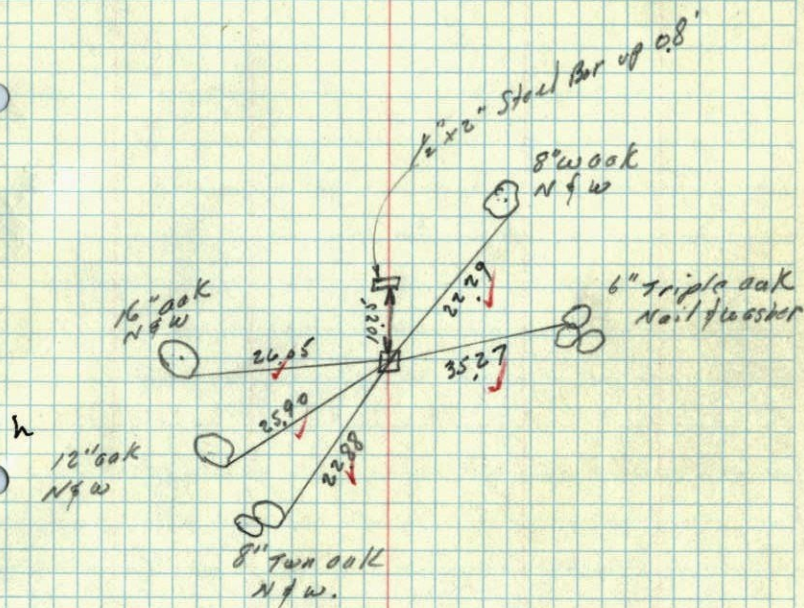 1/2" x 2" Steel Bar up 0.8'
8" w oak
N & W
6" Triple oak
Nail & washer
16" oak
N & W
22.29
1.025'
26.05
35.27
25.90
12" oak
N & W
22.88
8" Twn oak
N & W.